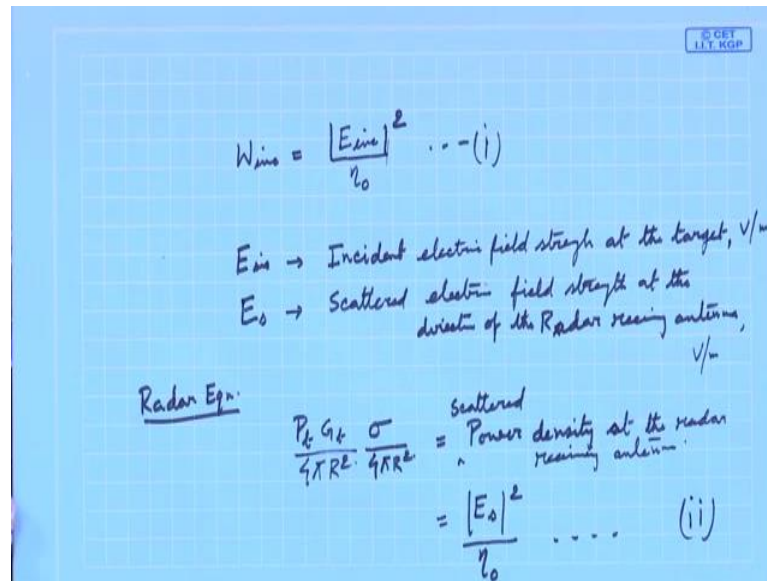 © CET
I.I.T. KGP
Winc = |Einc|² / η₀ ... (i)
Ein → Incident electric field stregh at the target, V/m
Es → Scattered electric field strength at the
direction of the Radar receiving antenna,
V/m
Radar Eqn.
Scattered
Pt Gt / 4πR² · σ / 4πR² = Power density at the radar
receiving antenna.
= |Es|² / η₀ .... (ii)